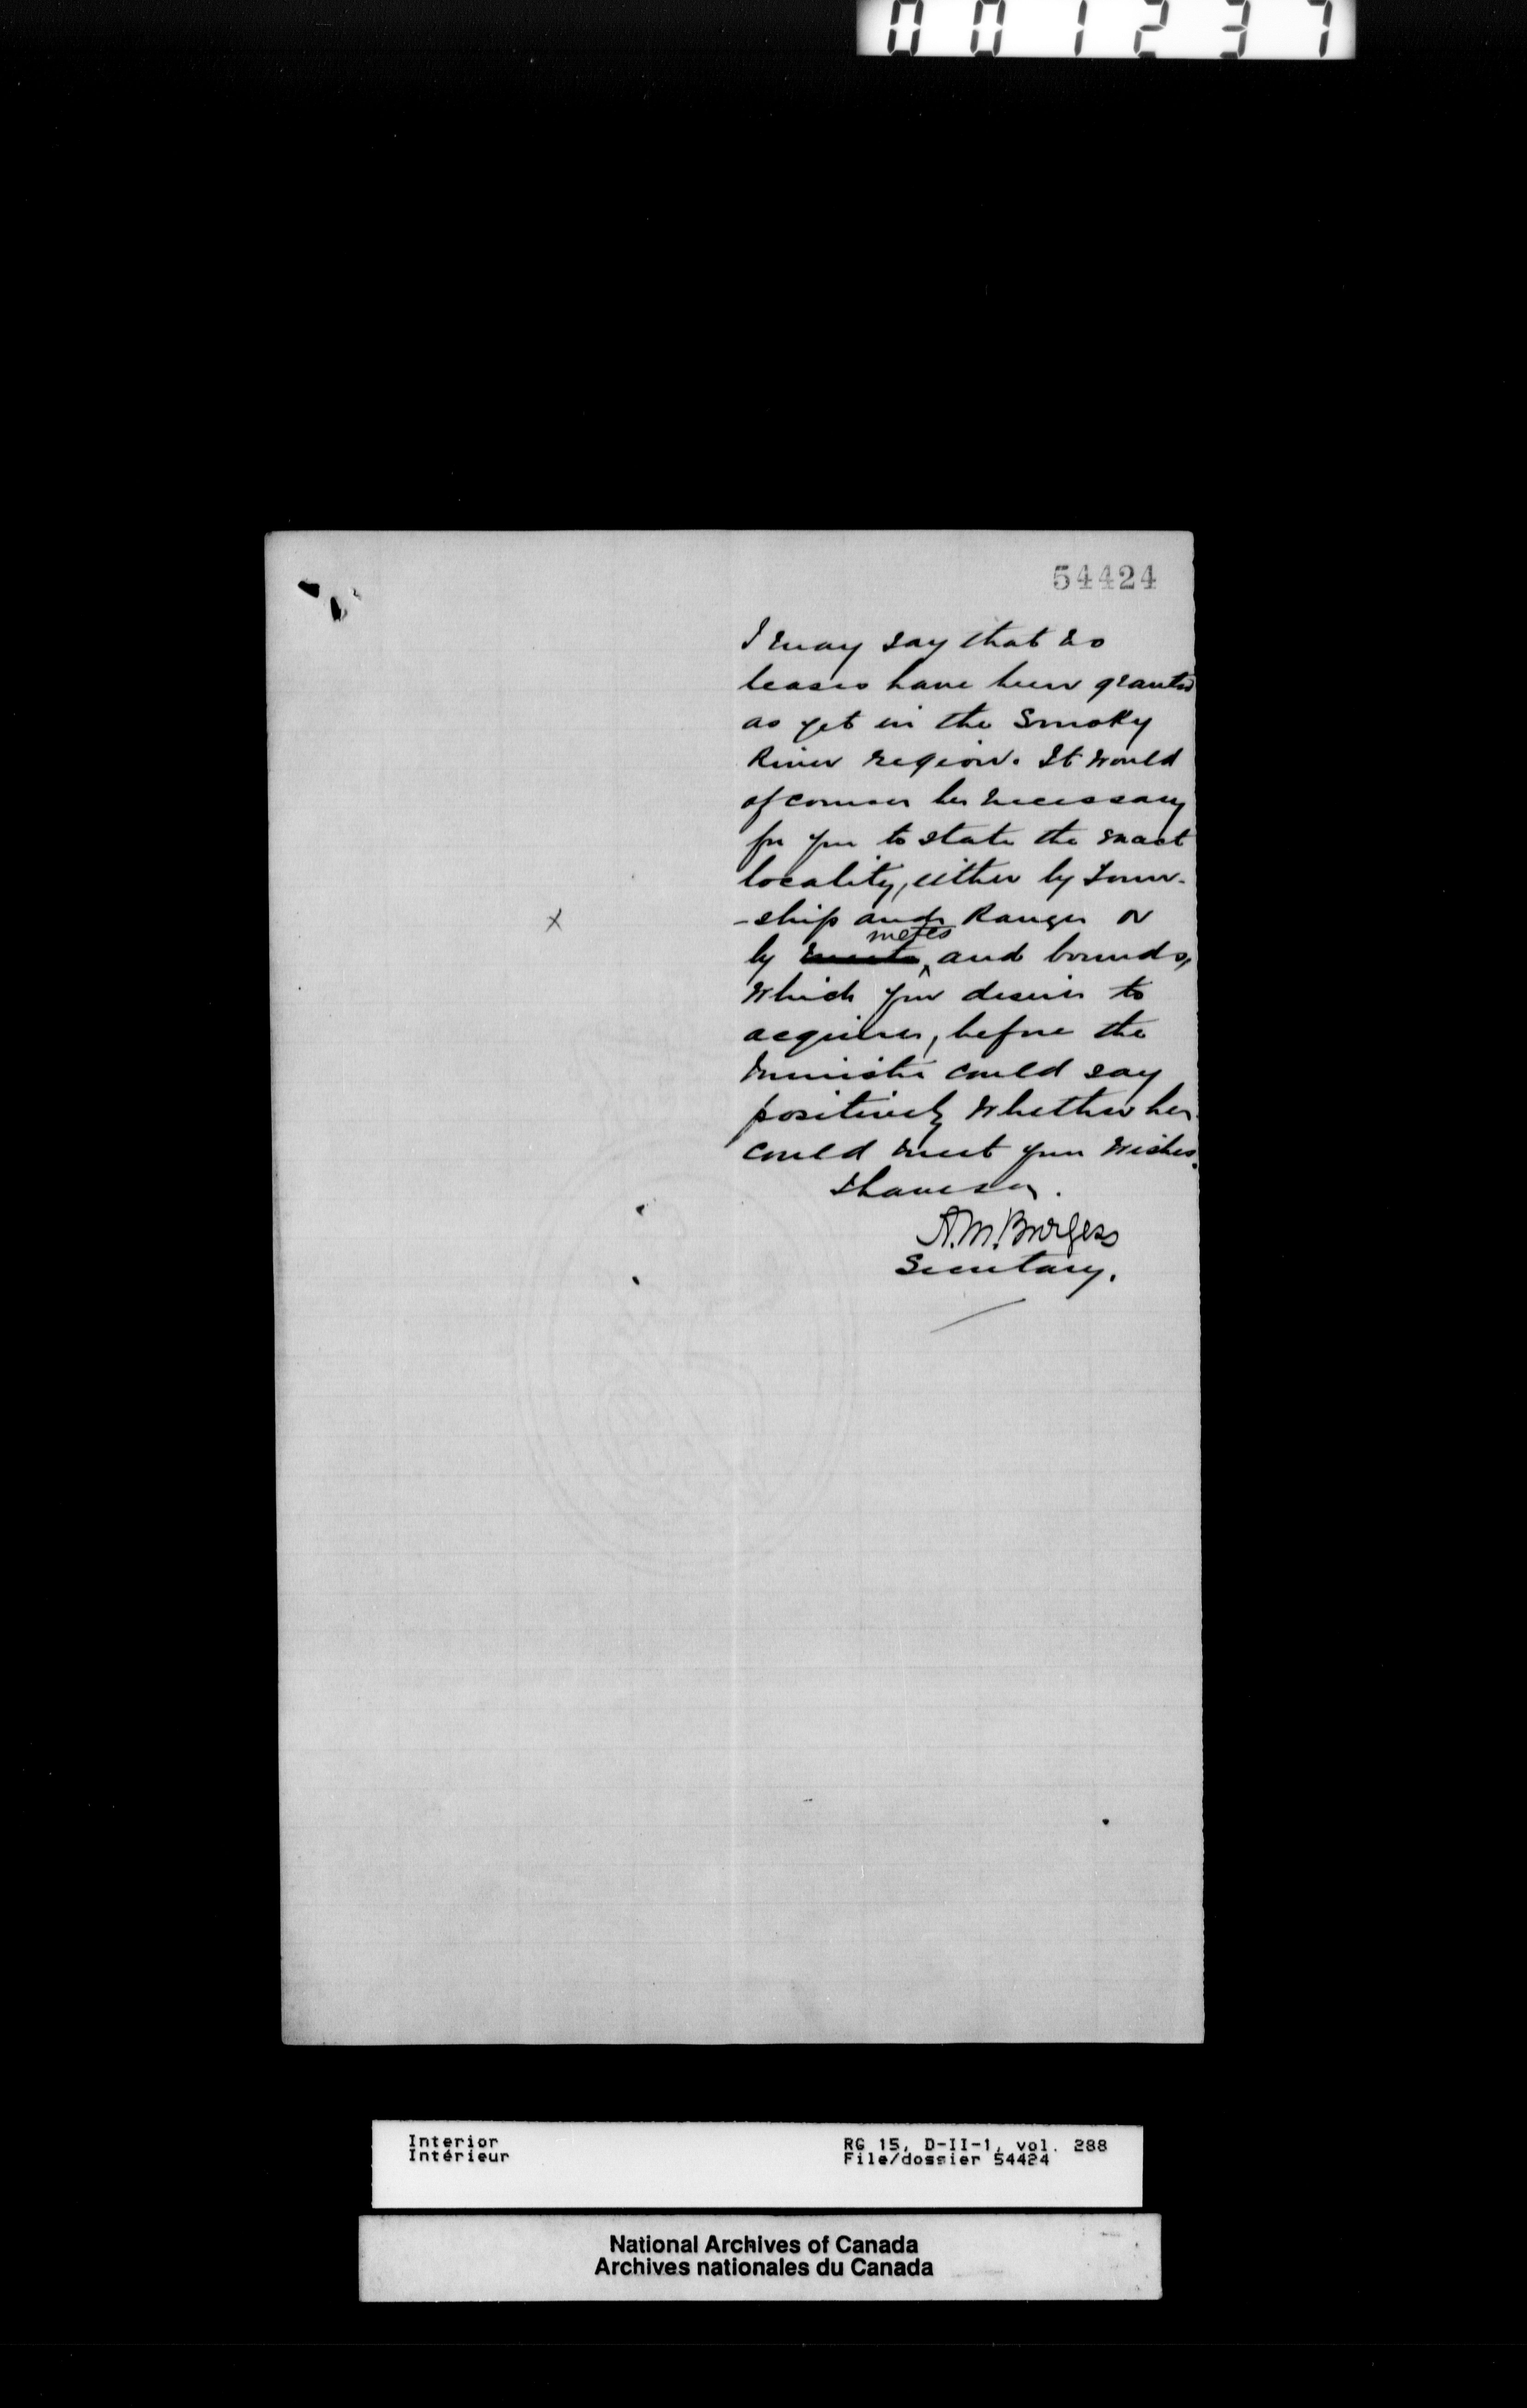 001237
54424
I may say that no
leases have been granted
as yet in the Smoky
River region. It would
of course be necessary
for you to state the exact
locality, either by Town-
-ship and Range or
metes
by and bounds,
which you desire to
acquire, before the
Minister could say
positively whether he
could meet your wishes.
A.M. Burgess
Secretary.
Interior
Intérieur
RG 15, D-II-1, vol. 288
File/dossier 54424
National Archives of Canada
Archives nationales du Canada